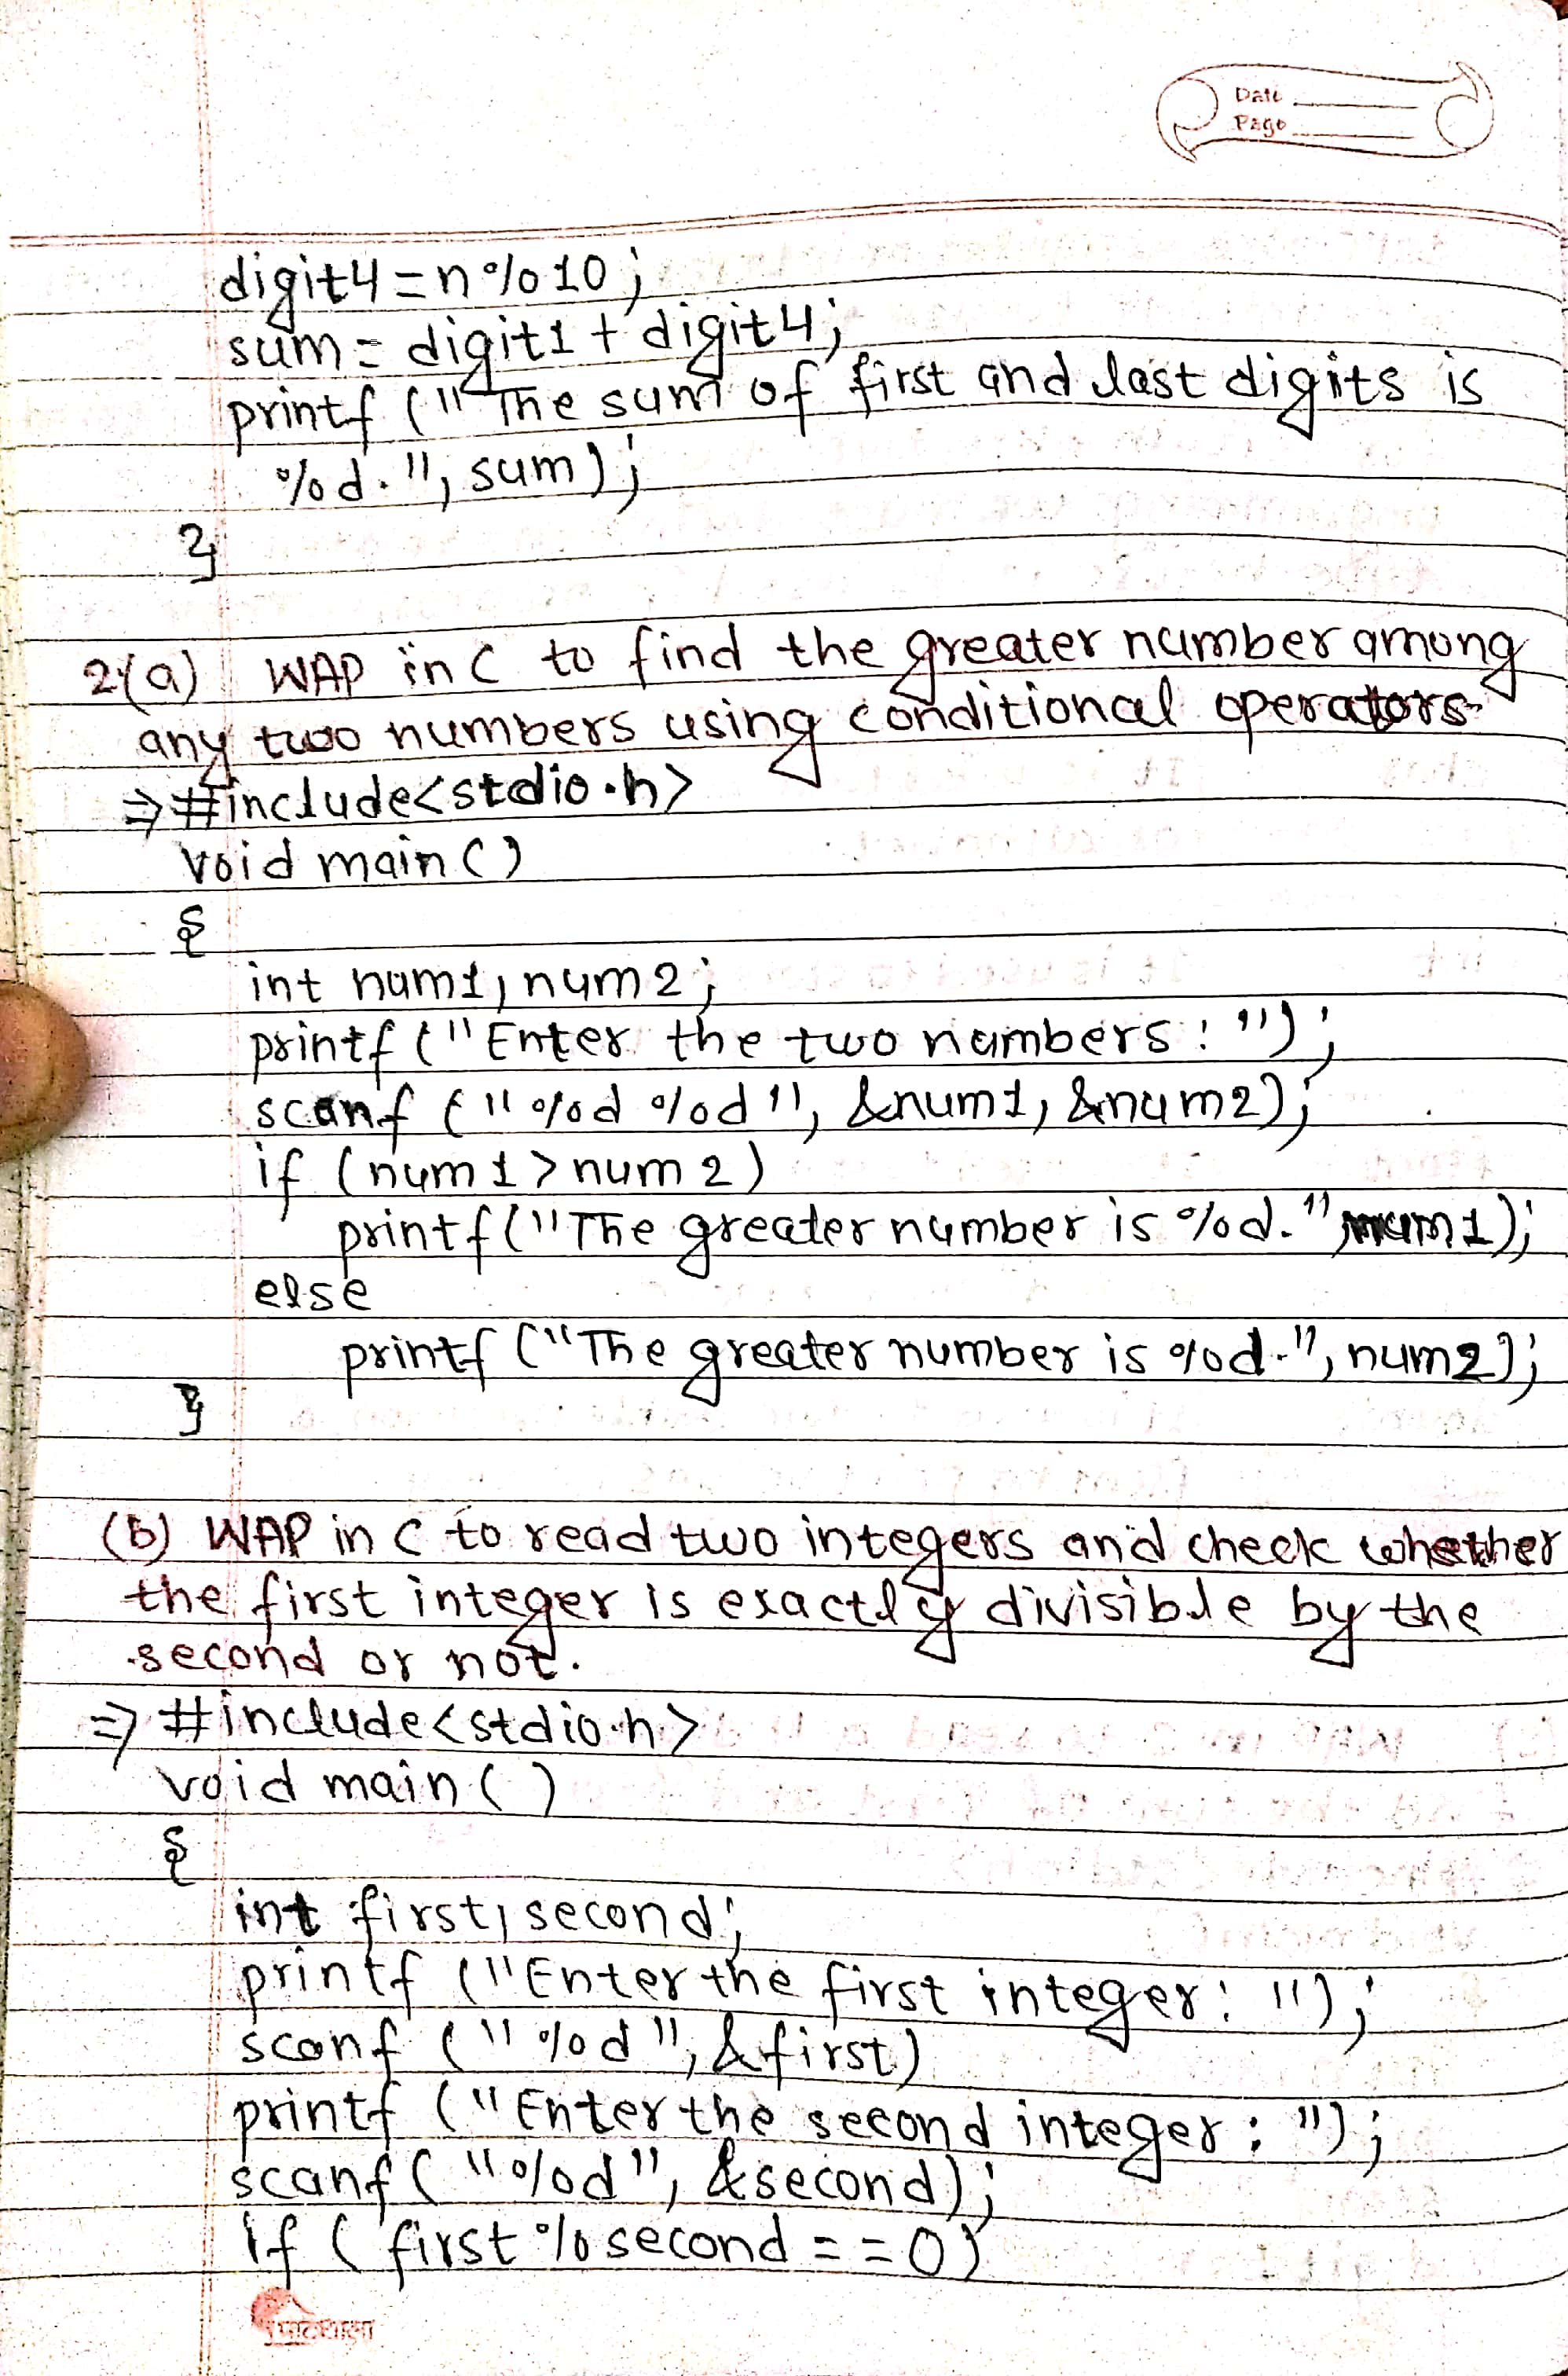 Date
Page
digit4=n%10;
sum= digit1 + digit4;
printf ("The sum of first and last digits is
%d.", sum);
}
2.(a) WAP in C to find the greater number among
any two numbers using conditional operators
⇒ #include<stdio.h>
void main()
{
int num1, num2;
printf ("Enter the two numbers: ");
scanf ("%d %d", &num1, &num2);
if (num1>num2)
printf("The greater number is %d.", num1);
else
printf ("The greater number is %d.", num2);
}
(b) WAP in C to read two integers and check whether
the first integer is exactly divisible by the
second or not.
⇒ #include<stdio.h>
void main()
{
int first, second;
printf ("Enter the first integer: ");
scanf ("%d", &first)
printf ("Enter the second integer: ");
scanf ("%d", &second);
if (first % second ==0)
पाठशाला